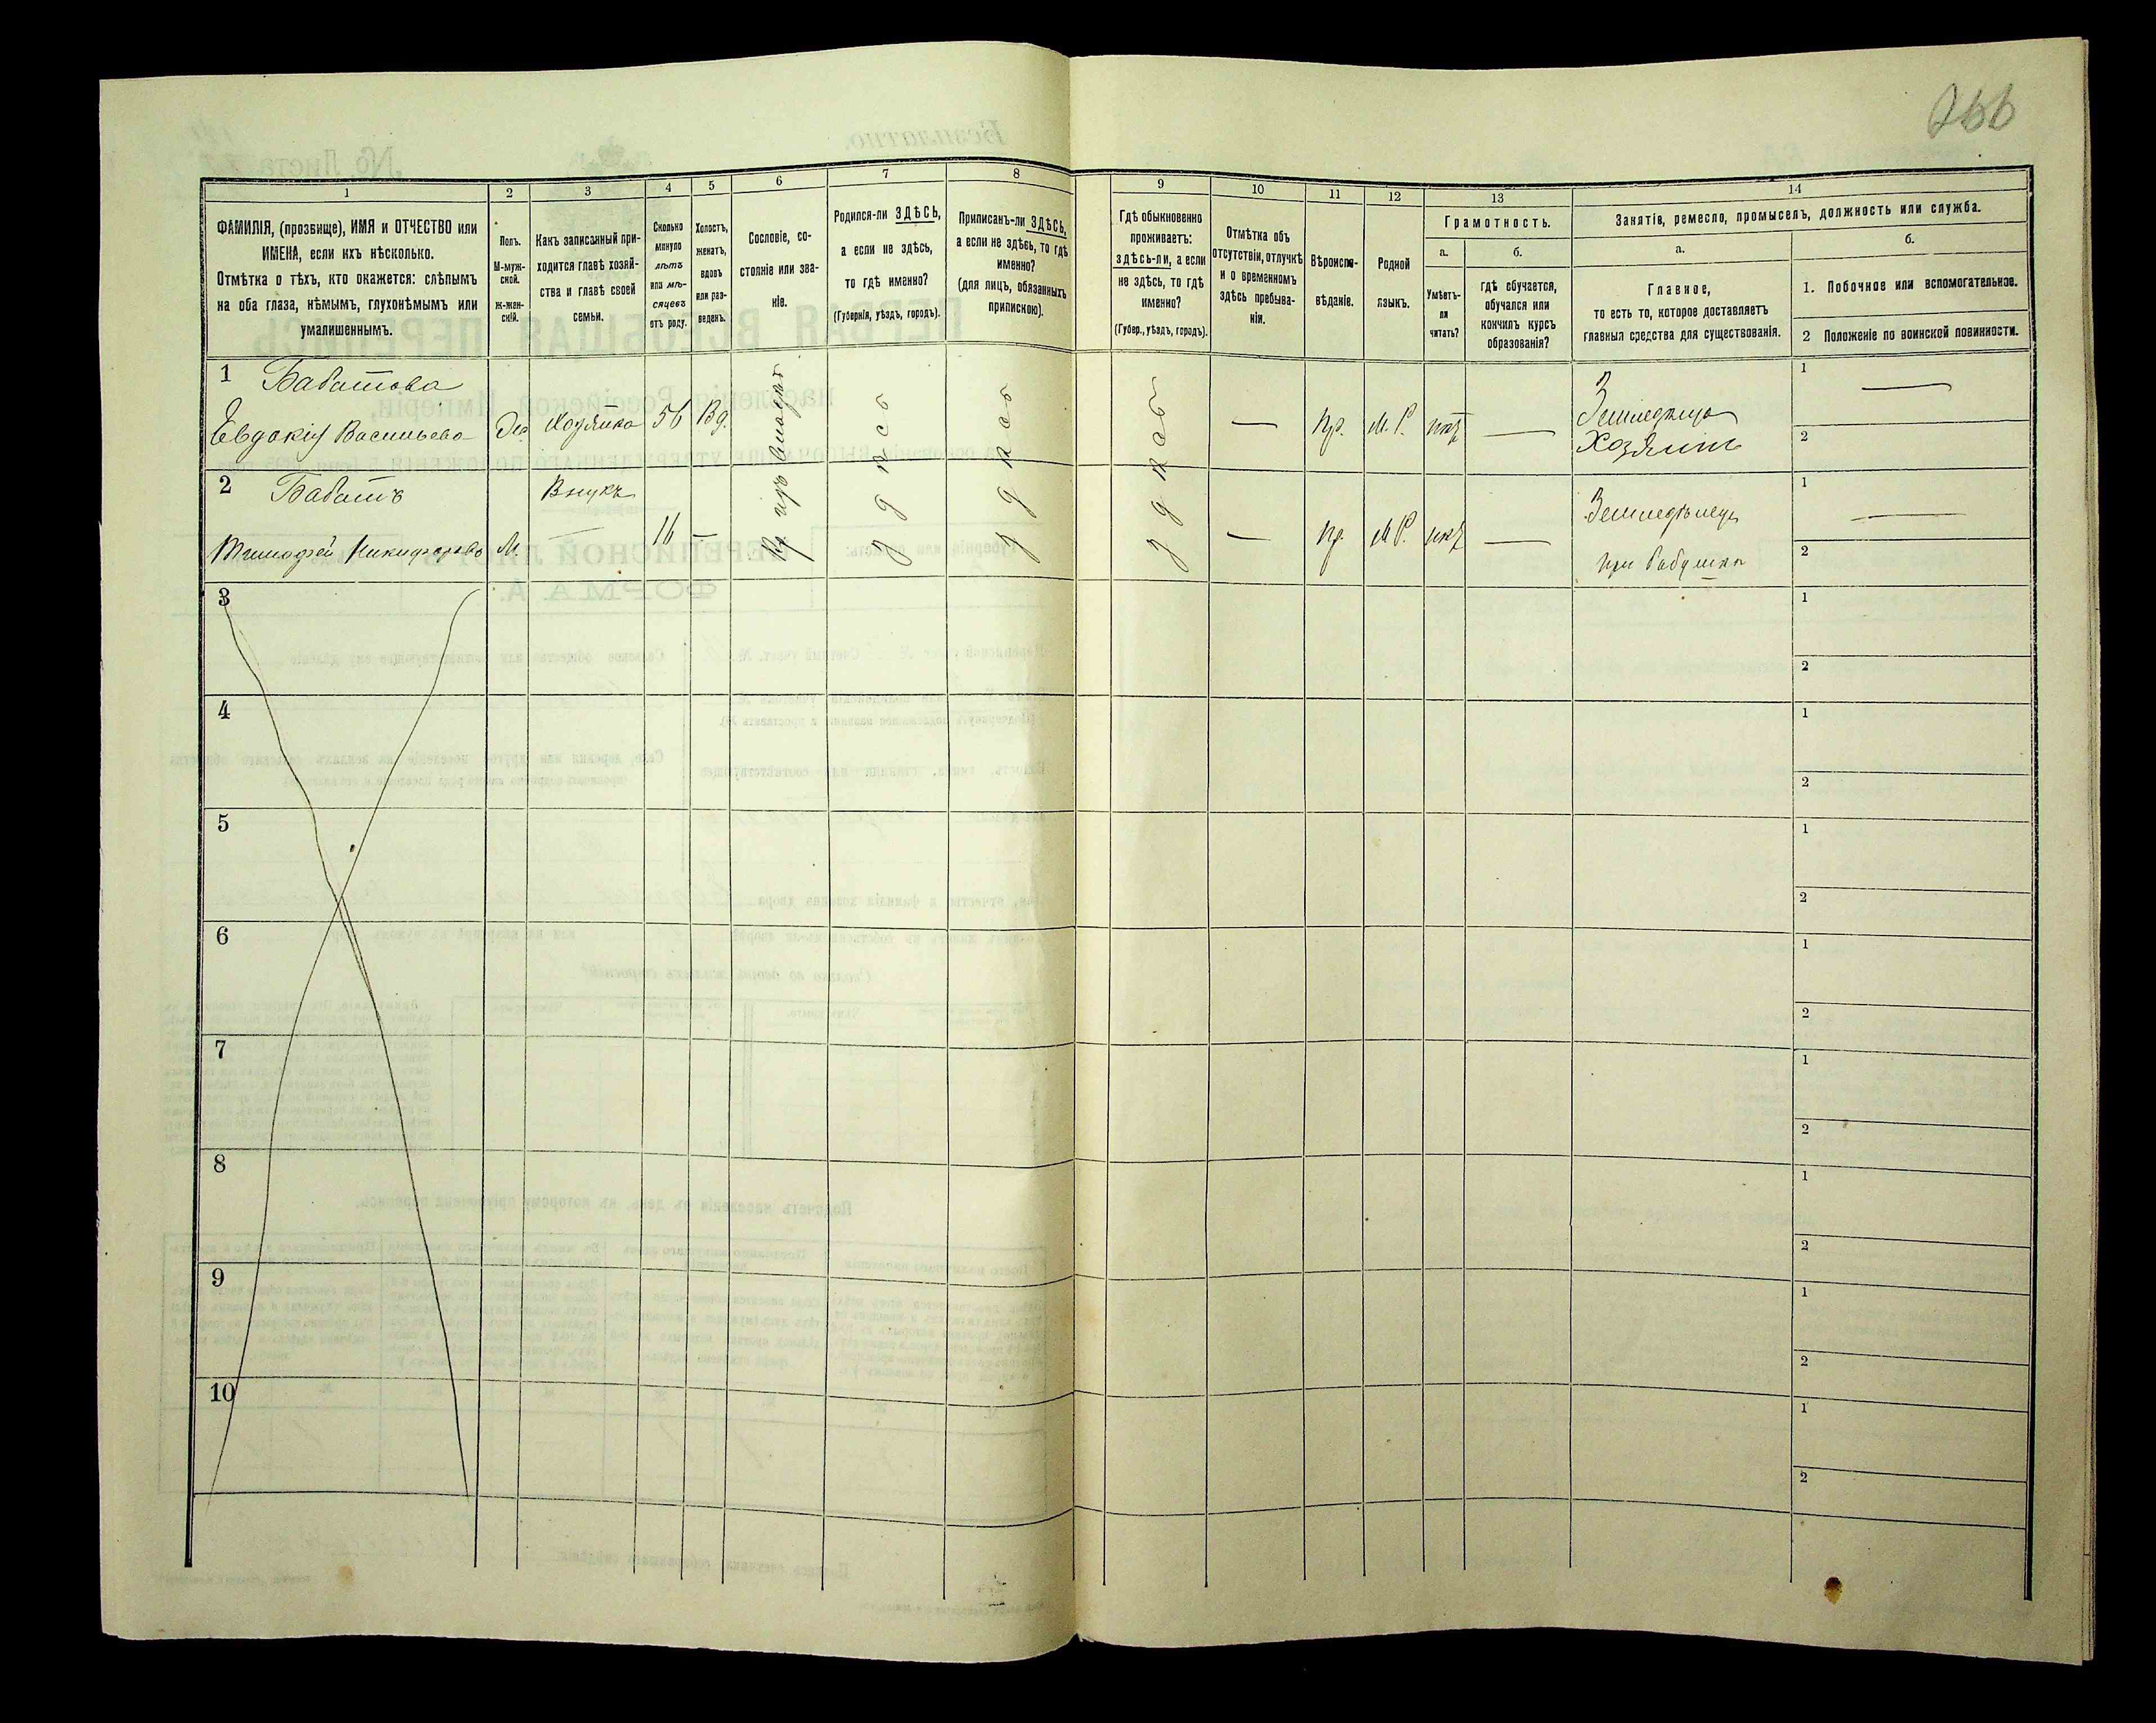 266
1
2
3
4
5
6
7
8
9
10
11
12
13
14
ФАМИЛІЯ, (прозбище), ИМЯ и ОТЧЕСТВО или
ИМЕНА, если ихъ нѣсколько.
Отмѣтка о тѣхъ, кто окажется: слѣпымъ
на оба глаза, нѣмымъ, глухонѣмымъ или
умалишеннымъ.
Полъ.
М-муж-
ской.
ж-жен-
скій.
Какъ записанный при-
ходится главѣ хозяй-
ства и главѣ своей
семьи.
Сколько
минуло
лѣтъ
или мѣ-
сяцевъ
отъ роду.
Холостъ,
женатъ,
вдовъ
или раз-
веденъ.
Сословіе, со-
стояніе или зва-
ніе.
Родился-ли ЗДѢСЬ,
а если не здѣсь,
то гдѣ именно?
(Губернія, уѣздъ, городъ).
Приписанъ-ли ЗДѢСЬ,
а если не здѣсь, то гдѣ
именно?
(для лицъ, обязанныхъ
припискою).
Гдѣ обыкновенно
проживаетъ:
здѣсь-ли, а если
не здѣсь, то гдѣ
именно?
(Губер., уѣздъ, городъ).
Отмѣтка объ
отсутствіи, отлучкѣ
и о временномъ
здѣсь пребыва-
ніи.
Вѣроиспо-
вѣданіе.
Родной
языкъ.
Грамотность.
а.
Умѣетъ-
ли
читать?
б.
гдѣ обучается,
обучался или
кончилъ курсъ
образованія?
Занятіе, ремесло, промыселъ, должность или служба.
а.
Главное,
то есть то, которое доставляетъ
главныя средства для существованія.
б.
1. Побочное или вспомогательное.
2 Положеніе по воинской повинности.
1 Бабатова
Евдокія Васильева
Хозяйка
56
Вд.
здѣсь
здѣсь
здѣсь
—
Пр.
М. Р.
нѣт
—
Хозяинъ
1 —
2
2 Бабатъ
Тимофей Никифоровъ
М.
Внукъ
—
16
—
—
Пр.
М Р.
нѣт
—
Земледѣлец
при бабушкѣ
1 —
2
3
1
2
4
1
2
5
1
2
6
1
2
7
1
2
8
1
2
9
1
2
10
1
2